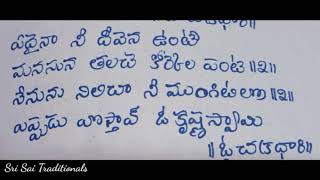 ఏదైనా నీ దీవెన ఉంటే
మనసున తలచే కోర్కెల పంట ॥2॥
నేనును నిలిచా నీ ముంగిటిలో ॥2॥
ఎప్పుడు వొస్తావ్ ఓ కృష్ణస్వామి
Sri Sai Traditionals